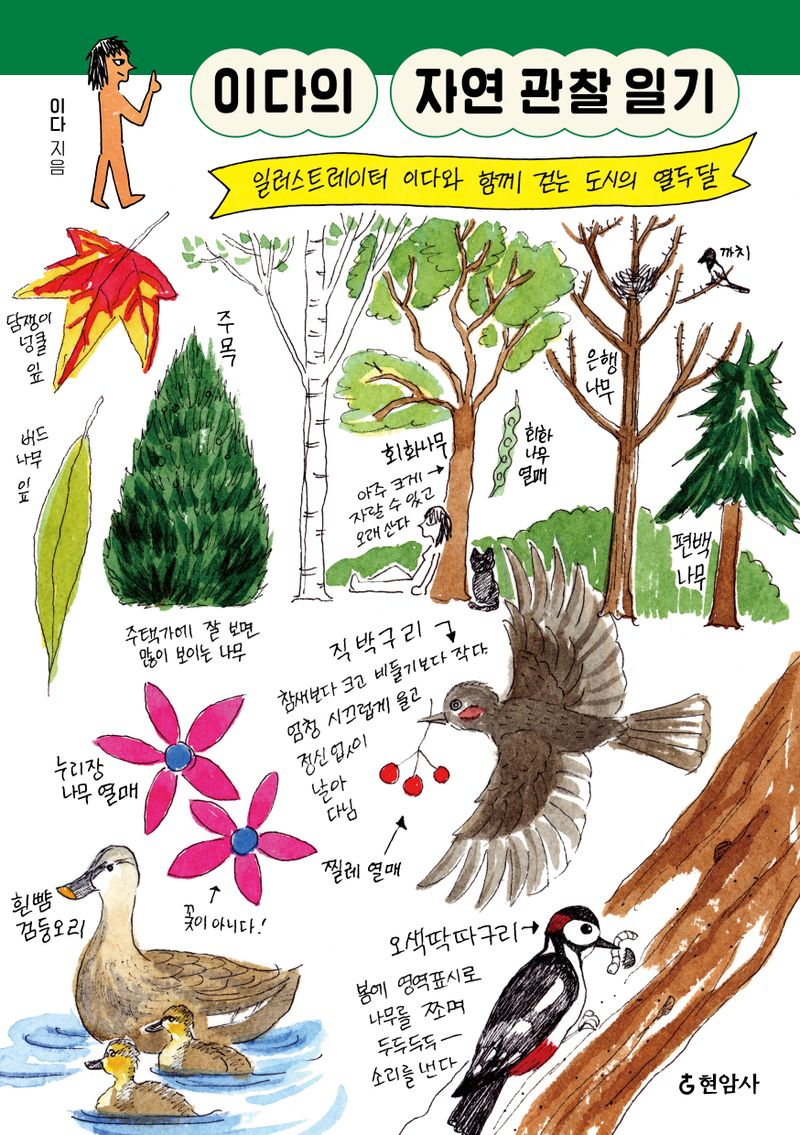 이다의 자연 관찰 일기
이다 지음
일러스트레이터 이다와 함께 걷는 도시의 열두 달
담쟁이
넝쿨
잎
주목
까치
은행
나무
버드
나무
잎
회화나무
아주 크게
자랄 수 있고
오래 산다
회화
나무
열매
편백
나무
주택가에 잘 보면
많이 보이는 나무
직박구리
참새보다 크고 비둘기보다 작다
엄청 시끄럽게 울고
정신없이
날아
다님
누리장
나무 열매
찔레 열매
꽃이 아니다!
흰뺨
검둥오리
오색딱따구리
봄에 영역표시로
나무를 쪼며
두두두두—
소리를 낸다
현암사